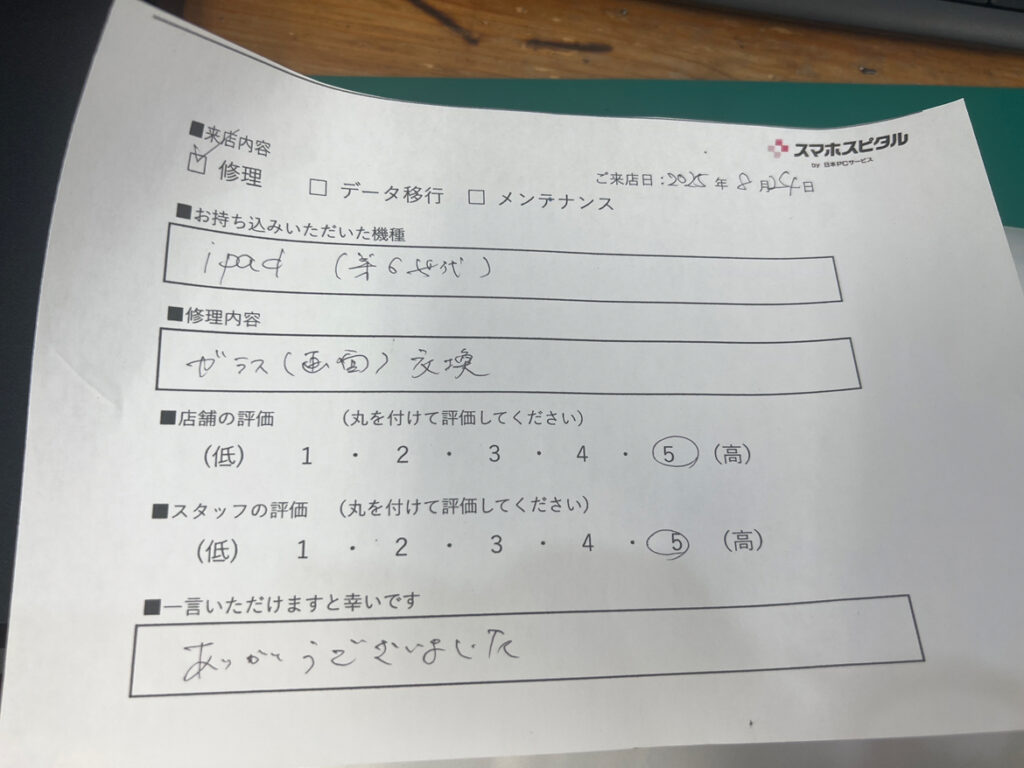 スマホスピタル
by 日本PCサービス
■来店内容
☑ 修理 □ データ移行 □ メンテナンス
ご来店日：2025 年 8 月 24 日
■お持ち込みいただいた機種
ipad (第6世代)
■修理内容
ガラス(画面)交換
■店舗の評価 （丸を付けて評価してください）
（低） 1 ・ 2 ・ 3 ・ 4 ・ 5 （高）
■スタッフの評価 （丸を付けて評価してください）
（低） 1 ・ 2 ・ 3 ・ 4 ・ 5 （高）
■一言いただけますと幸いです
ありがとうございました